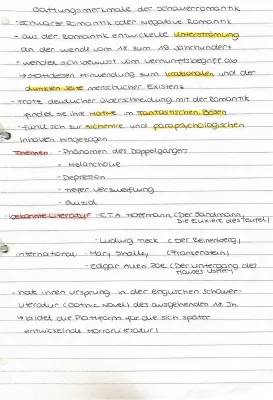 Gattungsmerkmale der Schauerromantik
- schwarze Romantik oder negative Romantik
- aus der Romantik entwickelte Unterströmung
an der Wende vom 18. zum 19. Jahrhundert
- wendet sich bewusst vom Vernunftsbegriff ab
→ stattdessen Hinwendung zum Irrationalen und der
dunklen Seite menschlicher Existenz
- trotz deutlicher Überschneidung mit der Romantik
findet sie ihre Motive im Fantastischen, Bösen
- fühlt sich zur Alchemie und parapsychologischen
Inhalten hingezogen
Themen: - Phänomen des Doppelgängers
- Melancholie
- Depression
- tiefer Verzweiflung
- Suizid
bekannte Literatur: E.T.A. Hoffmann (Der Sandmann,
Die Elixiere des Teufels)
- Ludwig Tieck (Der Runenberg)
international: - Mary Shelley (Frankenstein)
- Edgar Allen Poe (Der Untergang des
Hauses Usher)
- hat ihren Ursprung in der englischen Schauer-
literatur (Gothic Novel) des ausgehenden 18. Jh.
→ bildet die Plattform für die sich später
entwickelnde Horrorliteratur